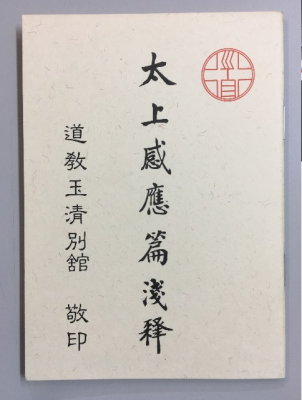 太上感應篇淺释
道教玉清別舘 敬印